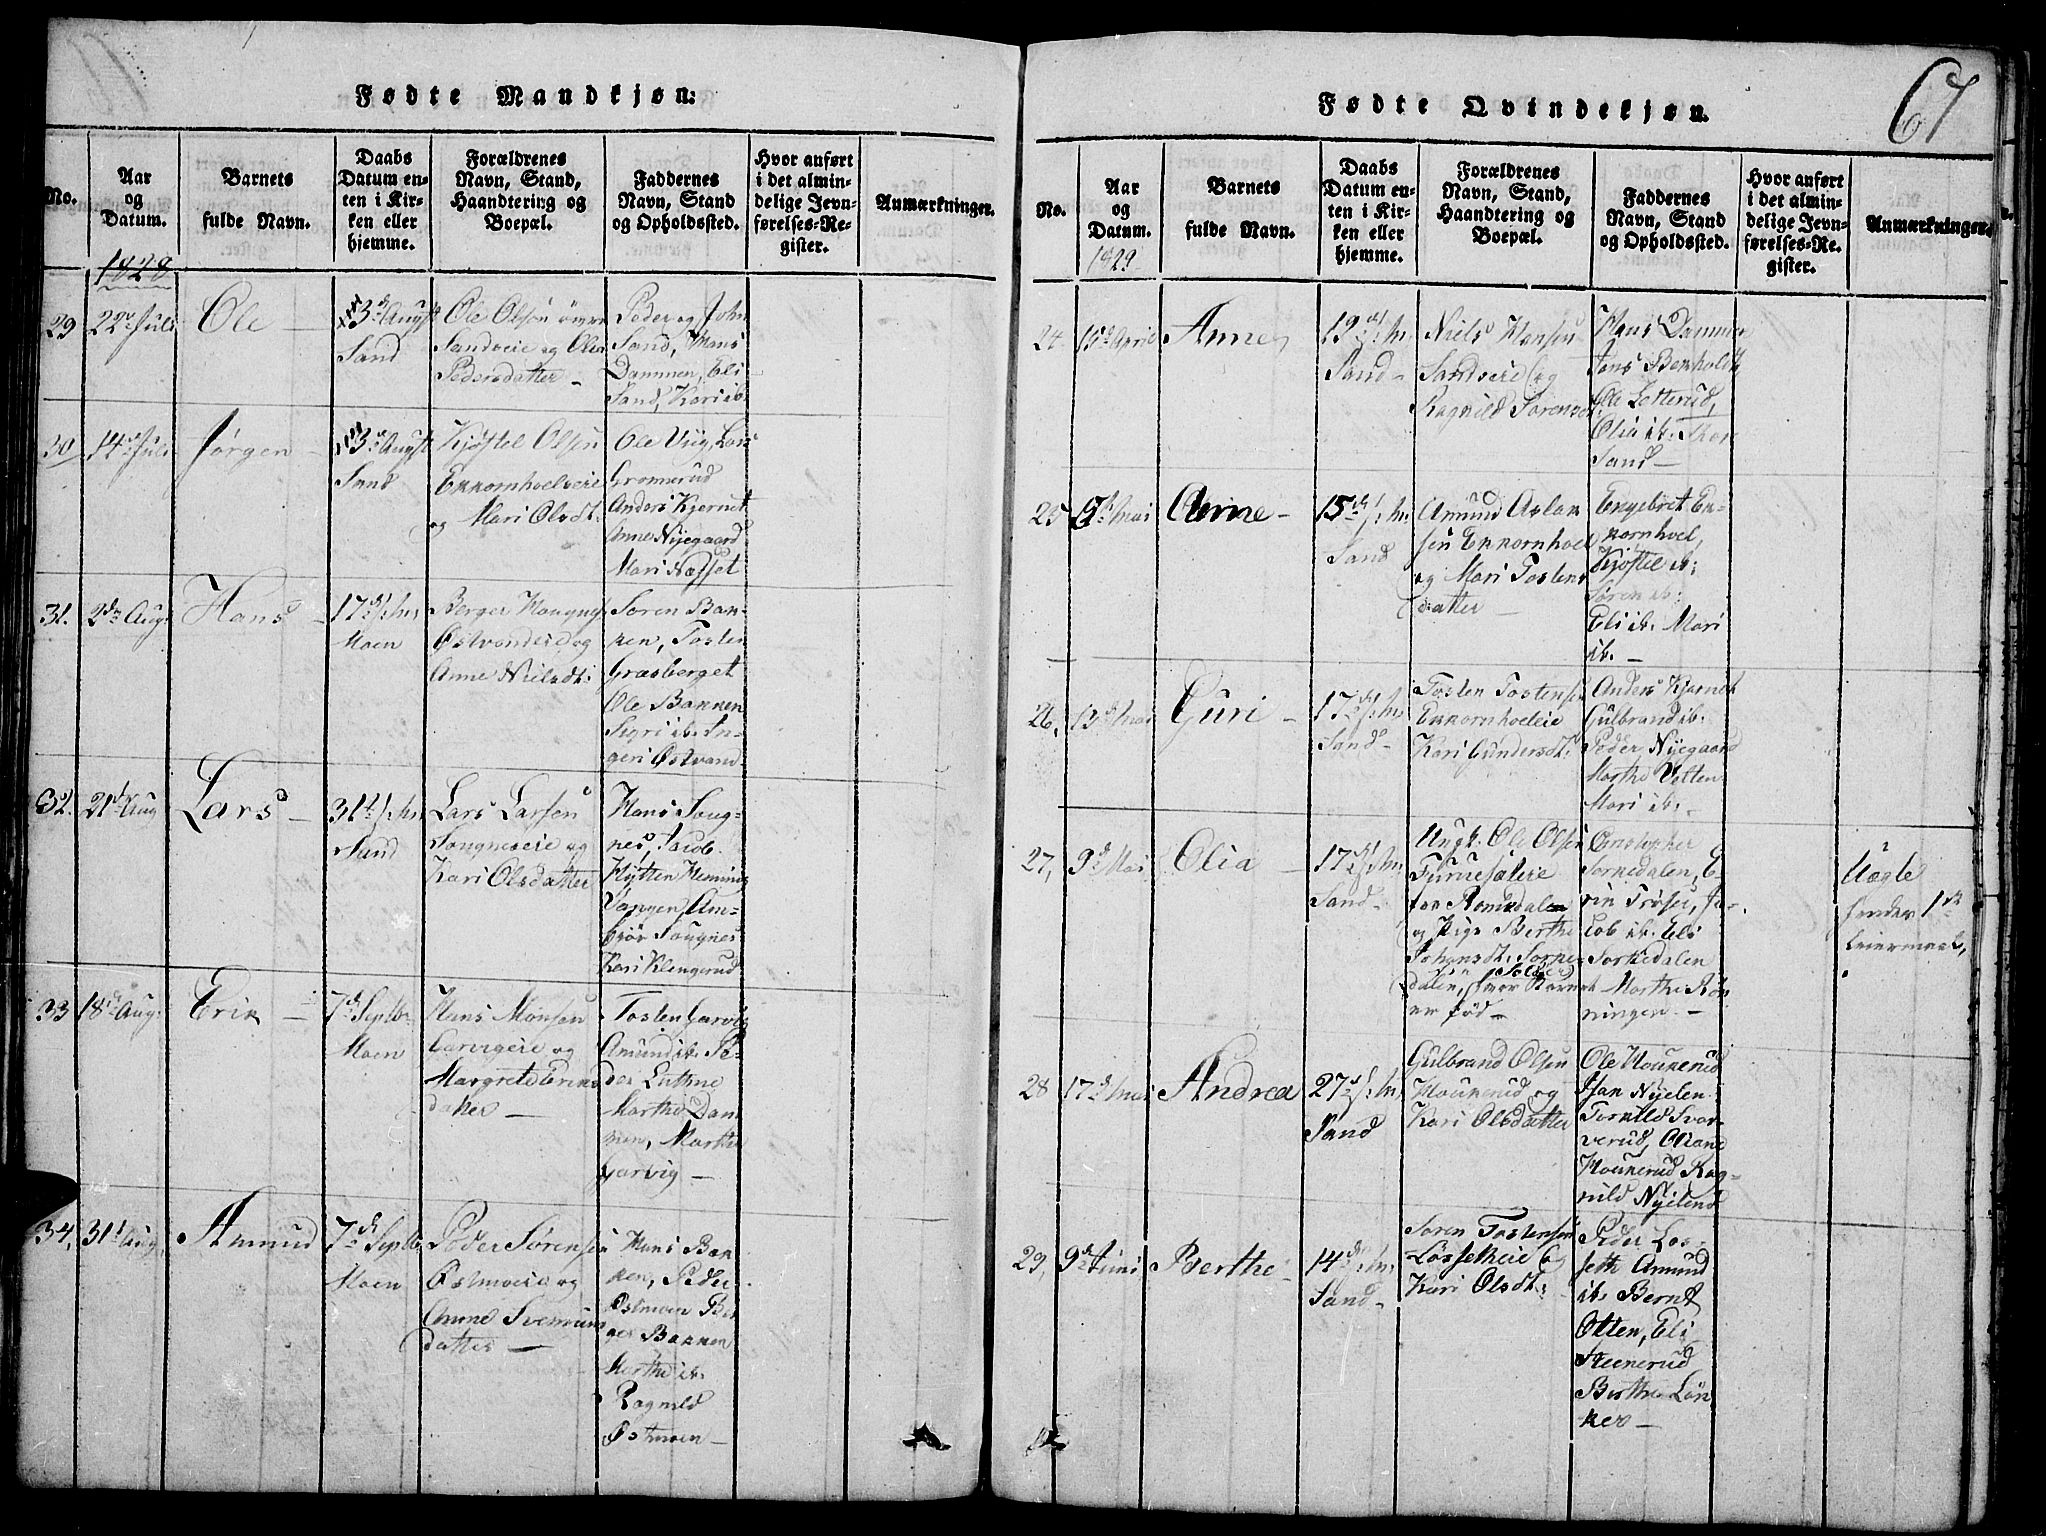 67
Fødte Mandkjøn:
No.
Aar
og
Datum.
Barnets
fulde Navn.
Daabs
Datum en-
ten i Kir-
ken eller
hjemme.
Forældrenes
Navn, Stand,
Haandtering og
Boepæl.
Faddernes
Navn, Stand
og Opholdssted.
Hvor anført
i det almin-
delige Jevn-
førelses-Re-
gister.
Anmærkninger.
29
22 Juli
Ole
3 August
Sand
Ole Olsen
Sandeie og Olia
Pedersdatter
Peder og John
Sand, Hans
Dammen, Eli
Sand, Kari ib.
30
14 Juli
Jørgen
3 August
Sand
Kjøstel Olsen
Ekkornhoeleie
og Mari Olsdt:
Ole Viig, Lars
Gromerud
Anders Kjernet
Anne Nyegaard
Mari Næsset
31.
2 Aug:
Hans
17
Moen
Berger
Østvandeie og
Anne Nielsdt:
Soren Bak-
ken, Tosten
Græsberget
Ole Bakken
Sigri ib. In-
geri Østvand
32.
21 Aug
Lars
31
Sand
Lars Larsen
Sougneseie og
Kari Olsdatter
Hans Soug-
nes, Jacob
Hytten Flemming
Vangen, Am-
bjør Sougnes
Kari Klengerud
33
18 Aug:
Erik
7 Septbr
Moen
Hans Monsen
Garvigeie og
Margrete Eriks
datter
Tosten Garvig
Amund ib. Pe-
der Luthne
Marthe Dam
men, Marthe
Garvig
34,
31 Aug
Amund
7 Septbr
Moen
Peder Sørensen
Østmoeie og
Anne Svennung
datter
Hans Bak
ken, Peder
Østmoen Ber
ger Bakken
Marthe ib.
Ragnild
Østmoen
Fødte Qvindekjøn.
No.
Aar
og
Datum.
1829
Barnets
fulde Navn.
Daabs
Datum en-
ten i Kir-
ken eller
hjemme.
Forældrenes
Navn, Stand,
Haandtering og
Boepæl.
Faddernes
Navn, Stand
og Opholdssted.
Hvor anført
i det almin-
delige Jevn-
førelses-Re-
gister.
Anmærkninger.
24
15 April
Anne
19
Sand
Niels Hansen
Sandeie og
Ragnild Sorensdt.
Hans Dammen
Jens Benholdt
Ole Lotterud,
Olia ib. Thor
Sand
25
Mai
Anne
15
Sand
Amund Aslak
sen Ekkornhoel
og Mari Tostens
datter
Engebret Ek-
kornhoel,
Kjøstel ib:
Søren ib:
Eli ib. Mari
ib.
26,
13 Mai
Guri
17
Sand
Tosten Tostensen
Ekkornhoeleie
Kari Gundersdt:
Anders Kjernet
Gulbrand ib.
Peder Nyegaard
Marthe Votten
Mari ib.
27,
9 Mai
Olia
17
Sand
Ungk. Ole Olsen
Furuesæleie
fra Romsdalen
og Pige Berthe
Johansdt. Sorke-
dalen, hvor Barnet
er fød
Christopher
Sorkedalen, E-
rik Frøser, Ja-
cob ib. Eli
Sorkedalen
Marthe Røn
ningen
Uægte
hendes 1ste
Leiermaal,
28
17 Mai
Andrea
27
Sand
Gulbrand Olsen
Houkerud og
Kari Olsdatter
Ole Houkerud
Jan Nyelen
Torkild Svar
verud, Oliane
Houkerud Rag-
nild Nyelend
29,
9 Juni
Berthe
14
Sand
Soren Tostensen
Løsseteie og
Kari Olsdt:
Peder Løs-
seth Amund
ib. Bernt
Olten, Eli
Steenerud
Berthe Løk
ker